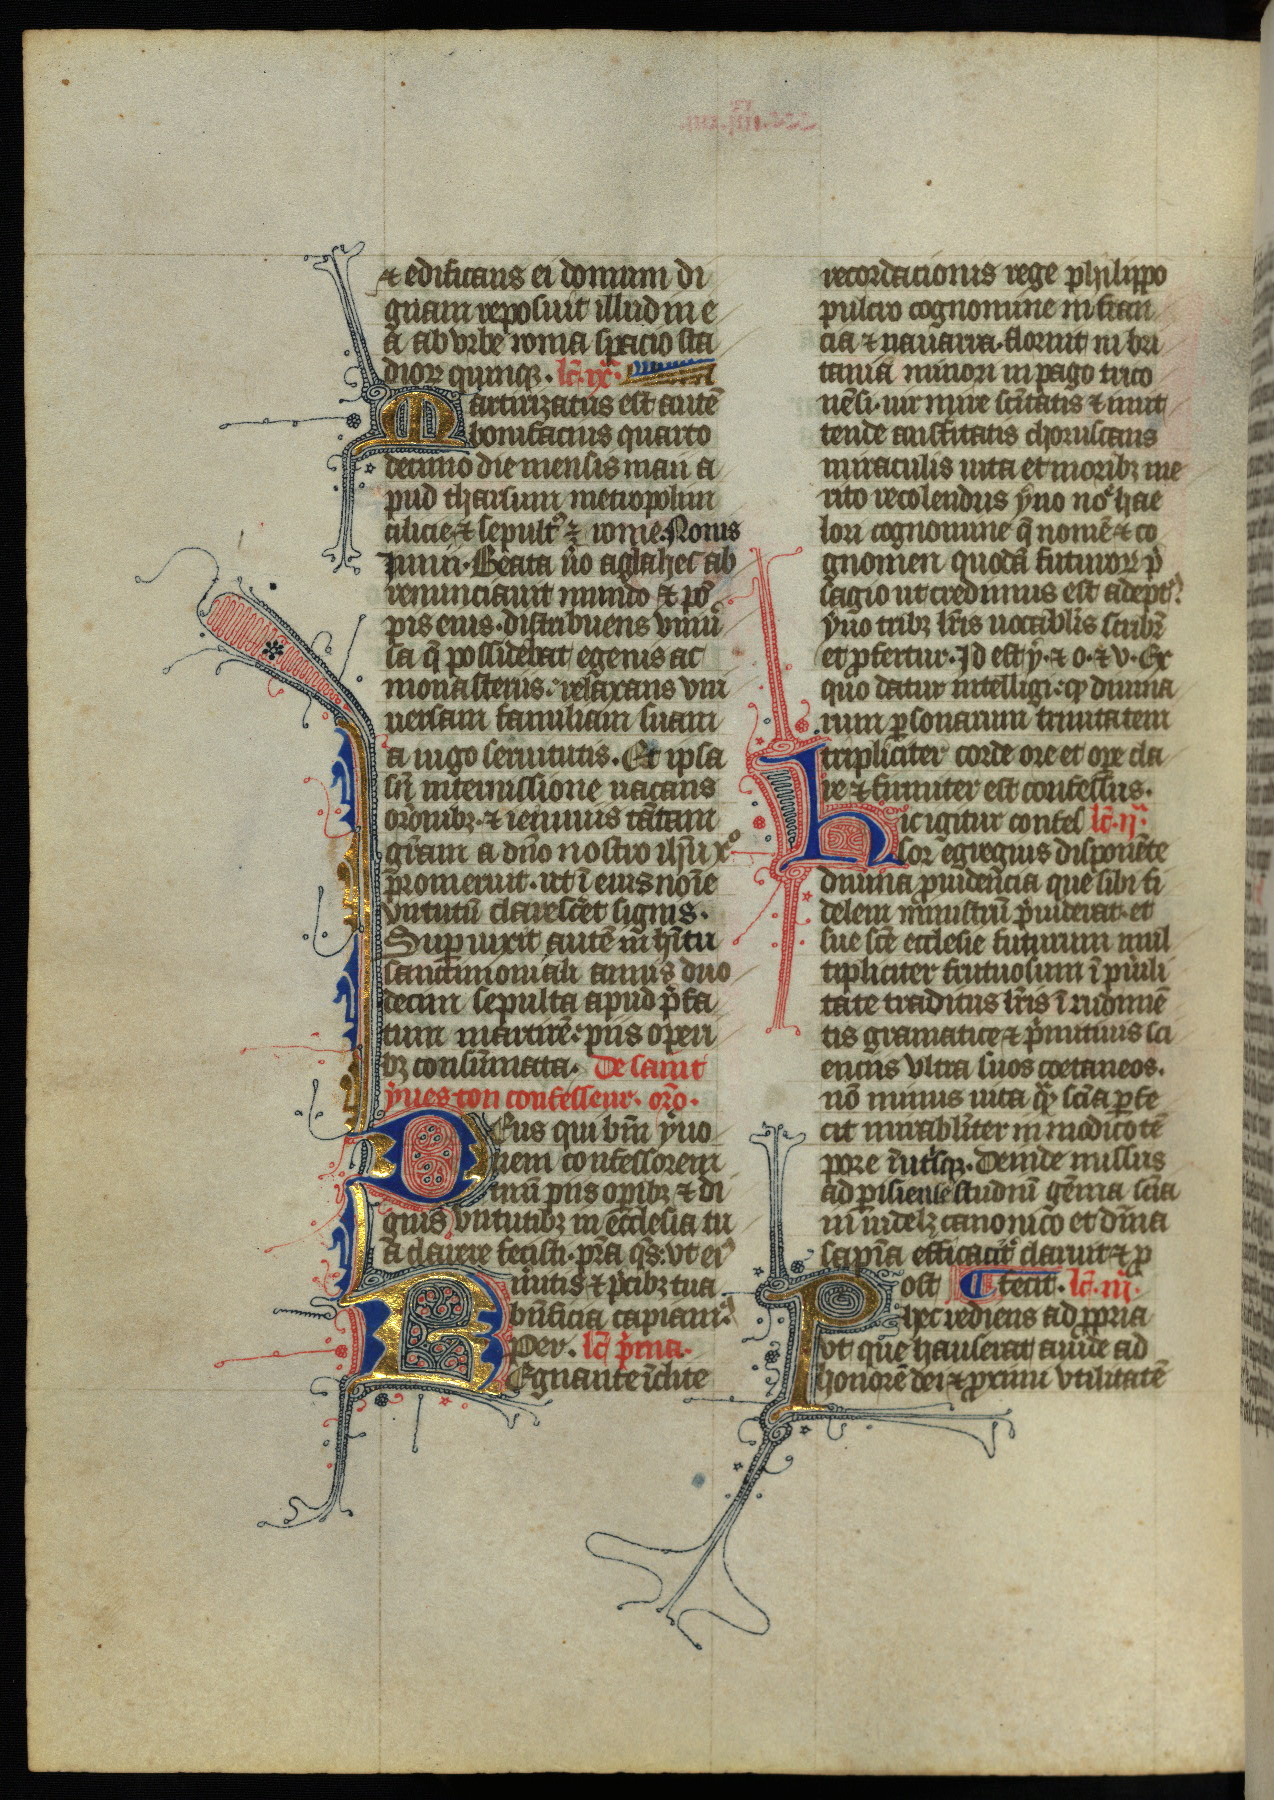 ⁊ edificans ei domum di
gnam reposuit illud in e
a ab vrbe roma spacio sta
dioꝝ quinqꝫ. lc̃. ix.
Marturizatus est autẽ
bonifacius quarto
decimo die mensis maii a
pud tharsum metropolim
cilicie ⁊ sepult⁹ ⁊ rome. Nonis
iunii. Beata ũo aglahes ab
renunciauit mundo ⁊ põ
pis eius. distribuens vniũ
sa q̃ possidebat egenis ac
monasteriis. relaxans vni
uersam familiam suam
a iugo seruitutis. Et ipsa
sñ intermissione uacans
orõnibꝫ. ⁊ ieiuniis tãtam
gr̃am a dño nostro ihũ xº
promeruit. ut ĩ eius noĩe
virtutũ claresc̃et signis.
Superuixit autẽ in hĩtu
sanctimoniali annis duo
decim sepulta apud p̃fa
tum martirẽ. piis operi
bꝫ consũmata. De saint
yues ton confesseur. orõ.
Deus qui bñm yuo
nem confessorem
tuũ piis op̃ibꝫ ⁊ di
gnis virtutibꝫ in ecclesia tu
a clarere fecisti. pr̃a q̃s. vt ei⁹
m̃itis ⁊ p̃cibꝫ tua
bñficia capiam⁹.
Per. lc̃ p̃ma.
Regnante ĩclite
recordacionis rege philippo
pulcro cognomine in fran
cia ⁊ nauarra. floruit in bri
tania minori in pago trico
nẽsi. uir mire sc̃itatis ⁊ inut
tende austitatis choruscans
miraculis uita et moribꝫ me
rito recolendus yuo noĩe hae
lori cognomine q̃ nomẽ ⁊ co
gnomen quodã futuroꝝ p̃
sagio ut credimus est adept⁹.
yuo tribꝫ lr̃is uocablĩs scribĩ
et ꝓfertur. Id est y. ⁊ o. ⁊ v. Ex
quo datur intelligi. ꝙ diuina
rum ꝑsonarum trinitatem
tripliciter corde ore et ope cla
re ⁊ firmiter est confessus.
Hic igitur confes lc̃. ij.
sor egregius disponẽte
diuina ꝓuidencia que sibi fi
delem ministrũ p̃uiderat. et
sue sc̃e ecclesie futurum mul
tipliciter fructuosum ĩ p̃uili
tate traditus lr̃is ĩ rudimẽ
tis gramatice ⁊ p̃mitiuis sci
enciis vltra suos coetaneos.
nõ minus uita qᷓ sciã ꝑfe
cit mirabliter in modico tẽ
pore ĩ utⁱsqꝫ. Deinde missus
ad parisiense studiũ gẽma sciã
in iudelꝫ canonico et diũna
sapiã efficacit̃ claruit ⁊ ꝓ
fecit. lc̃. iij.
Post
hec rediens ad ꝓpria
vt que hauserat auide ad
honorẽ dei ⁊ ꝓximi vtilitatẽ